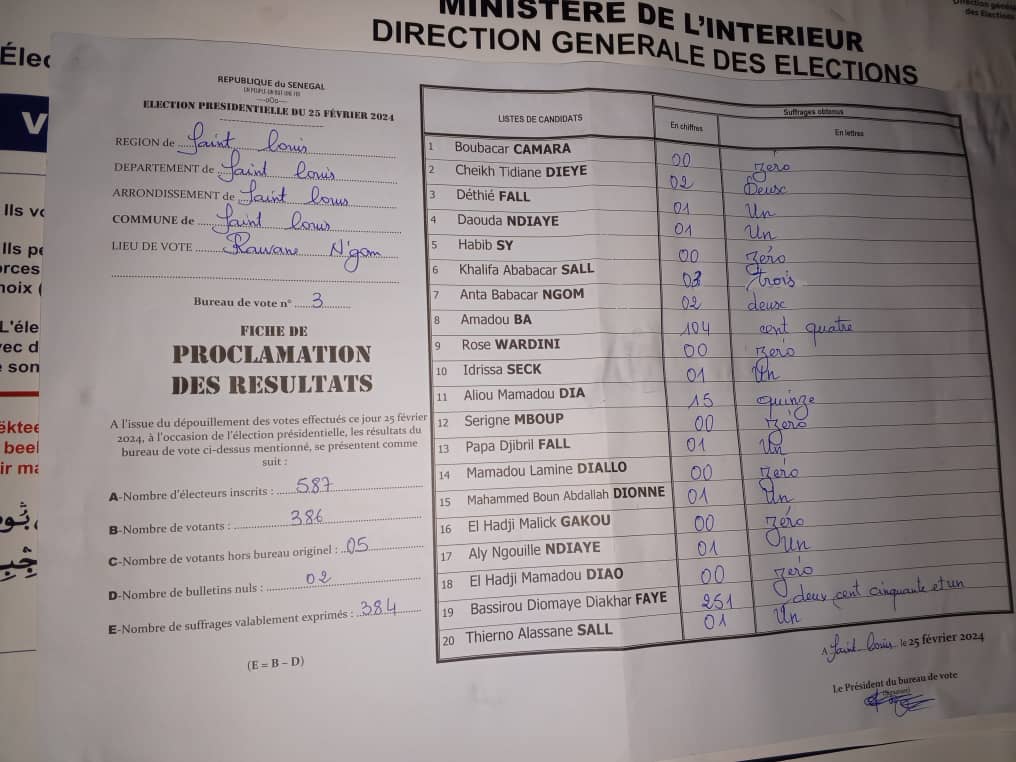 MINISTÈRE DE L'INTERIEUR
DIRECTION GENERALE DES ELECTIONS
Direction géné
des Elections
Élec
V
Ils vo
Ils pe
orces
hoix (
L'éle
vec d
e son
ëktee
beel
ir ma
REPUBLIQUE du SENEGAL
UN PEUPLE-UN BUT-UNE FOI
----oOo----
ELECTION PRESIDENTIELLE DU 25 FÉVRIER 2024
REGION de Saint Louis
DEPARTEMENT de Saint Louis
ARRONDISSEMENT de Saint Louis
COMMUNE de Saint Louis
LIEU DE VOTE Rawane N'gom
Bureau de vote n° 3
FICHE DE
PROCLAMATION
DES RESULTATS
A l'issue du dépouillement des votes effectués ce jour 25 février
2024, à l'occasion de l'élection présidentielle, les résultats du
bureau de vote ci-dessus mentionné, se présentent comme
suit :
A-Nombre d'électeurs inscrits : 587
B-Nombre de votants : 386
C-Nombre de votants hors bureau originel : 05
D-Nombre de bulletins nuls : 02
E-Nombre de suffrages valablement exprimés : 384
(E = B – D)
LISTES DE CANDIDATS
Suffrages obtenus
En chiffres
En lettres
1 Boubacar CAMARA 00 zero
2 Cheikh Tidiane DIEYE 02 Deux
3 Déthié FALL 01 Un
4 Daouda NDIAYE 01 Un
5 Habib SY 00 zéro
6 Khalifa Ababacar SALL 03 trois
7 Anta Babacar NGOM 02 deux
8 Amadou BA 104 cent quatre
9 Rose WARDINI 00 zéro
10 Idrissa SECK 01 Un
11 Aliou Mamadou DIA 15 quinze
12 Serigne MBOUP 00 zéro
13 Papa Djibril FALL 01 Un
14 Mamadou Lamine DIALLO 00 zéro
15 Mahammed Boun Abdallah DIONNE 01 Un
16 El Hadji Malick GAKOU 00 zéro
17 Aly Ngouille NDIAYE 01 Un
18 El Hadji Mamadou DIAO 00 zéro
19 Bassirou Diomaye Diakhar FAYE 251 deux cent cinquante et un
20 Thierno Alassane SALL 01 Un
A Saint-Louis le 25 février 2024
Le Président du bureau de vote